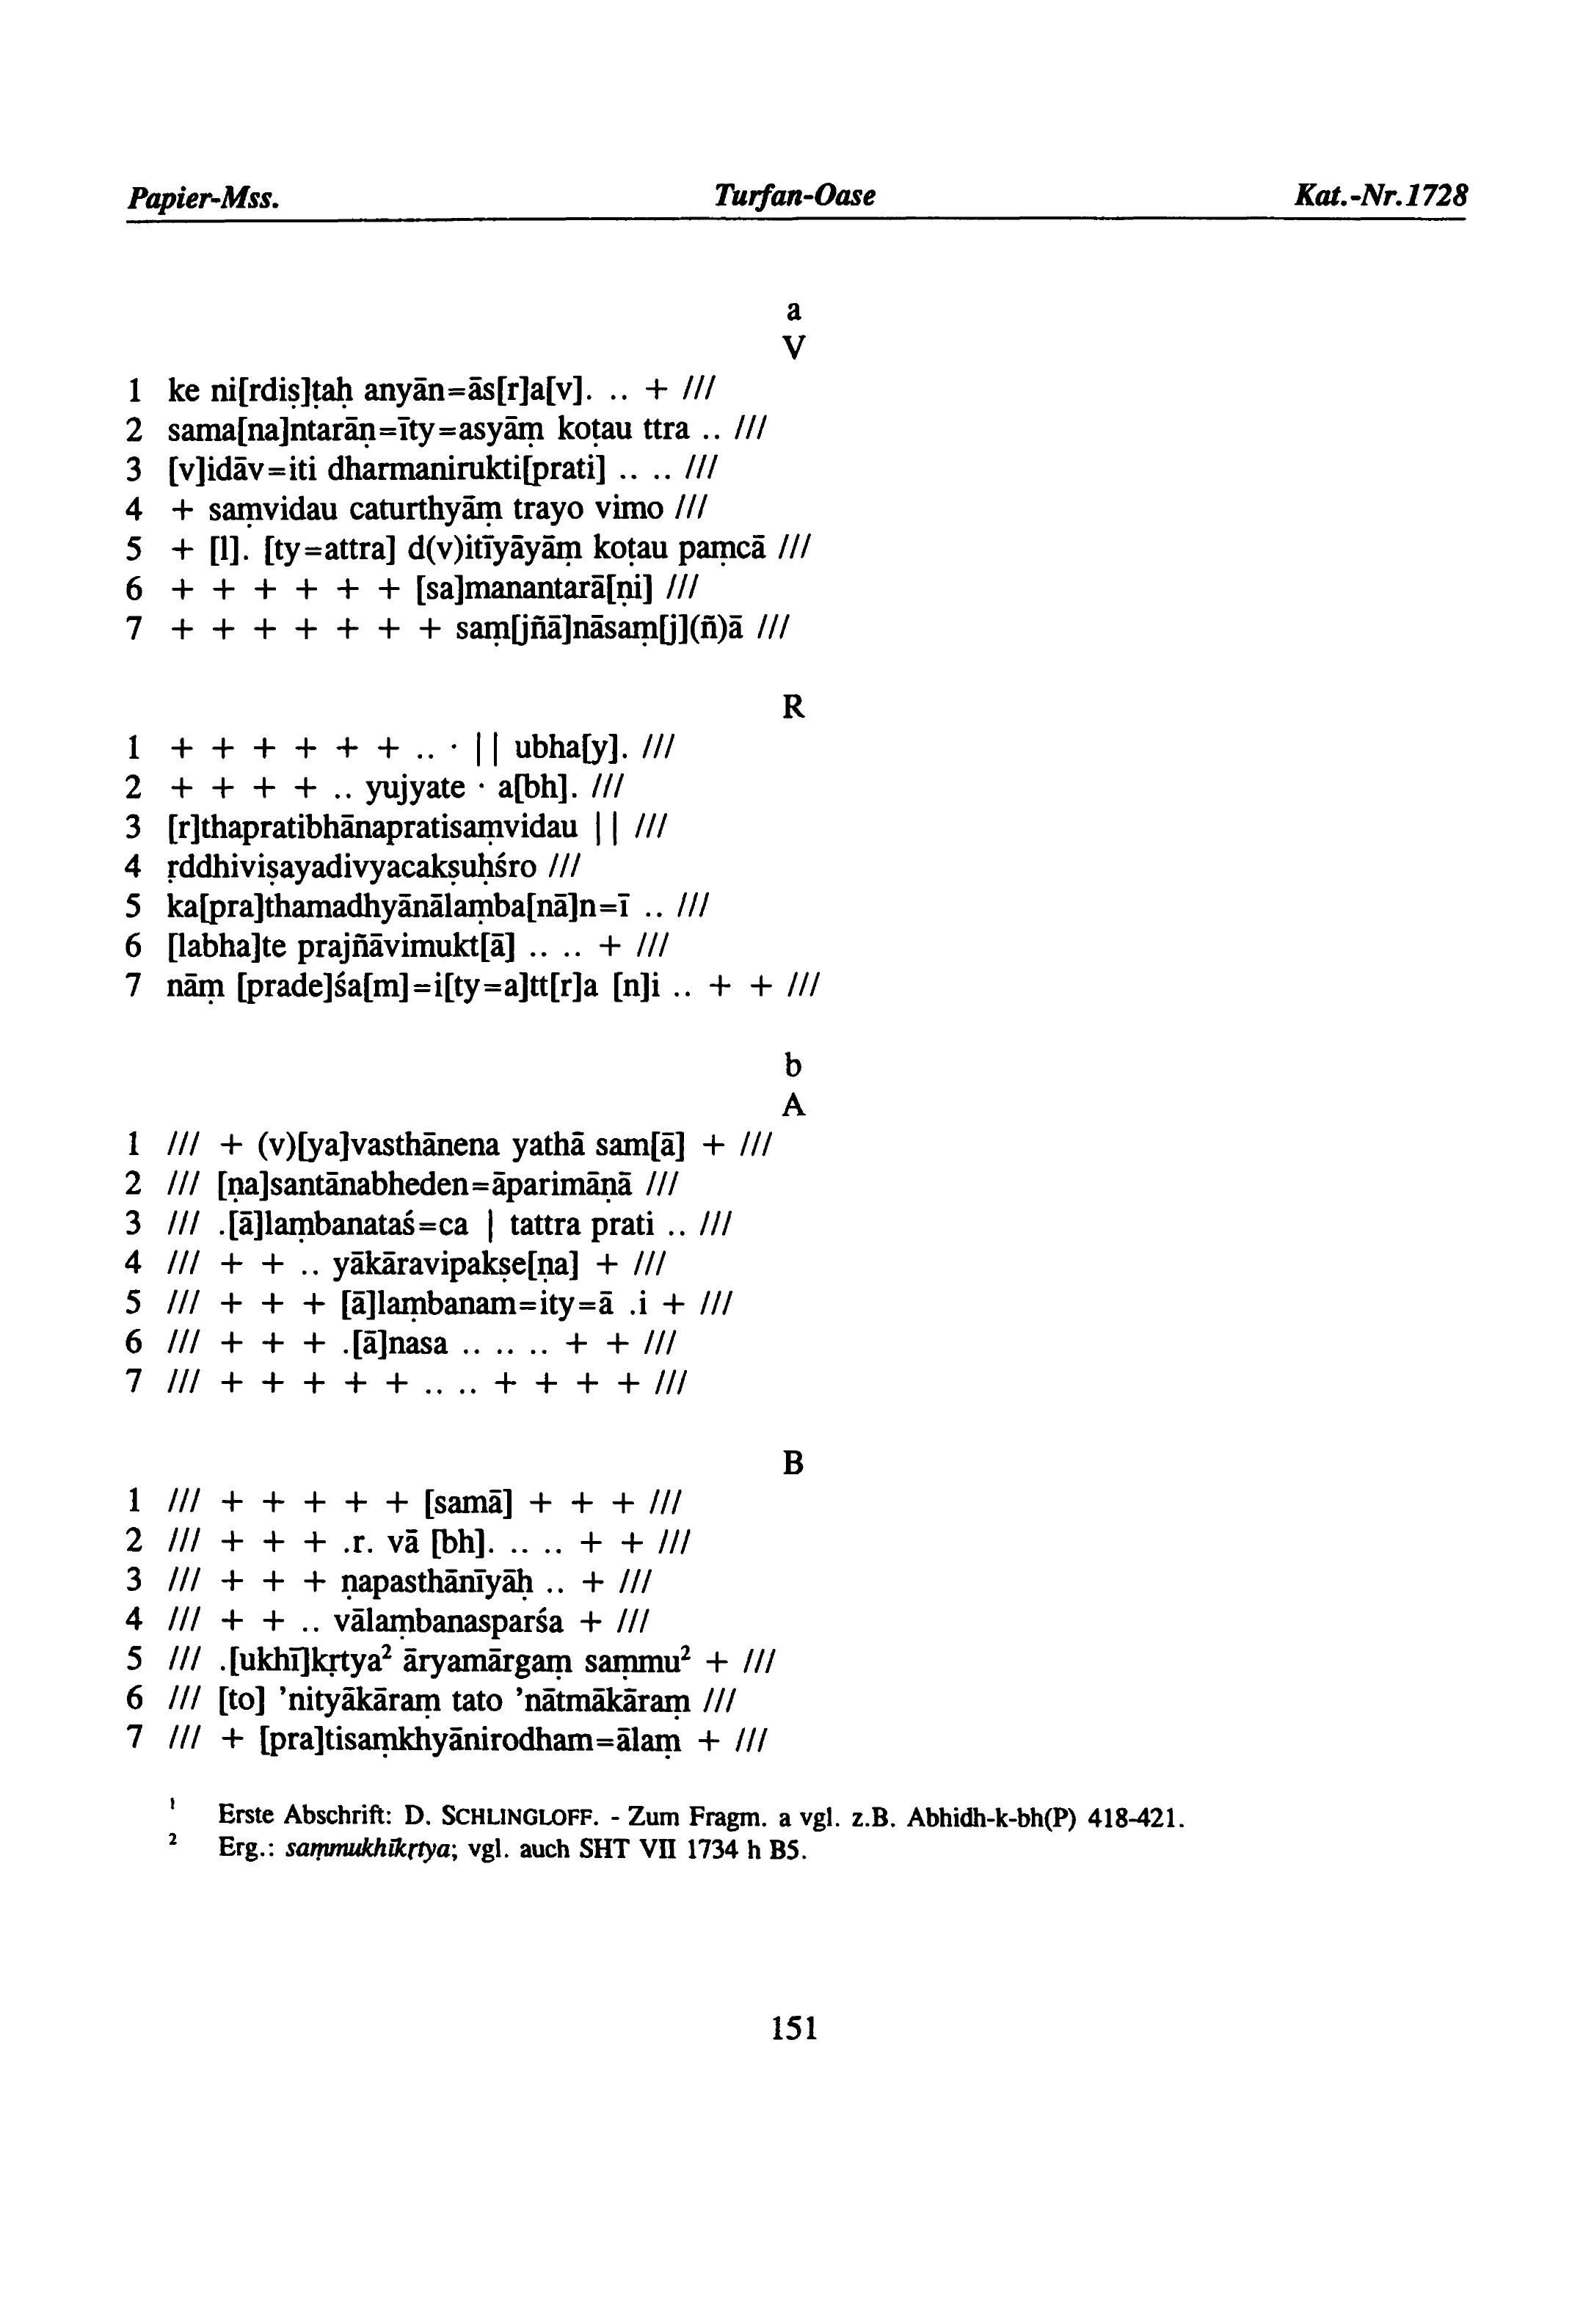 Papier-Mss. Turfan-Oase Kat.-Nr.1728
a
V
1 ke ni[rdiṣ]ṭaḥ anyān=ās[r]a[v]. .. + ///
2 sama[na]ntarāṇ=īty=asyāṃ koṭau ttra .. ///
3 [v]idāv=iti dharmanirukti[prati] .. .. ///
4 + saṃvidau caturthyāṃ trayo vimo ///
5 + [l]. [ty=attra] d(v)itīyāyāṃ koṭau paṃcā ///
6 + + + + + + [sa]manantarā[ṇi] ///
7 + + + + + + + saṃ[jñā]nāsaṃ[j](ñ)ā ///
R
1 + + + + + + .. · || ubha[y]. ///
2 + + + + .. yujyate · a[bh]. ///
3 [r]thapratibhānapratisaṃvidau || ///
4 ṛddhiviṣayadivyacakṣuḥśro ///
5 ka[pra]thamadhyānālaṃba[nā]n=ī .. ///
6 [labha]te prajñāvimukt[ā] .. .. + ///
7 nāṃ [prade]śa[m]=i[ty=a]tt[r]a [n]i .. + + ///
b
A
1 /// + (v)[ya]vasthānena yathā sam[ā] + ///
2 /// [ṇa]santānabheden=āparimāṇā ///
3 /// .[ā]laṃbanataś=ca | tattra prati .. ///
4 /// + + .. yākāravipakṣe[ṇa] + ///
5 /// + + + [ā]laṃbanam=ity=ā .i + ///
6 /// + + + .[ā]nasa .. .. .. + + ///
7 /// + + + + + .. .. + + + + ///
B
1 /// + + + + + [samā] + + + ///
2 /// + + + .r. vā [bh]. .. .. + + ///
3 /// + + + ṇapasthānīyāḥ .. + ///
4 /// + + .. vālaṃbanasparśa + ///
5 /// .[ukhī]kṛtya² āryamārgaṃ saṃmu² + ///
6 /// [to] ’nityākāraṃ tato ’nātmākāraṃ ///
7 /// + [pra]tisaṃkhyānirodham=ālaṃ + ///
¹ Erste Abschrift: D. SCHLINGLOFF. - Zum Fragm. a vgl. z.B. Abhidh-k-bh(P) 418-421.
² Erg.: saṃmukhīkṛtya; vgl. auch SHT VII 1734 h B5.
151